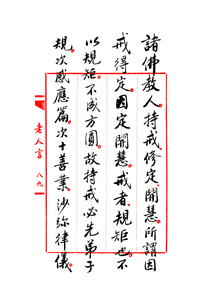 諸佛教人持戒修定開慧所謂因
戒得定因定開慧戒者規矩也不
以規矩不成方圓故持戒必先弟子
規次感應篇次十善業沙彌律儀
老人言 八九